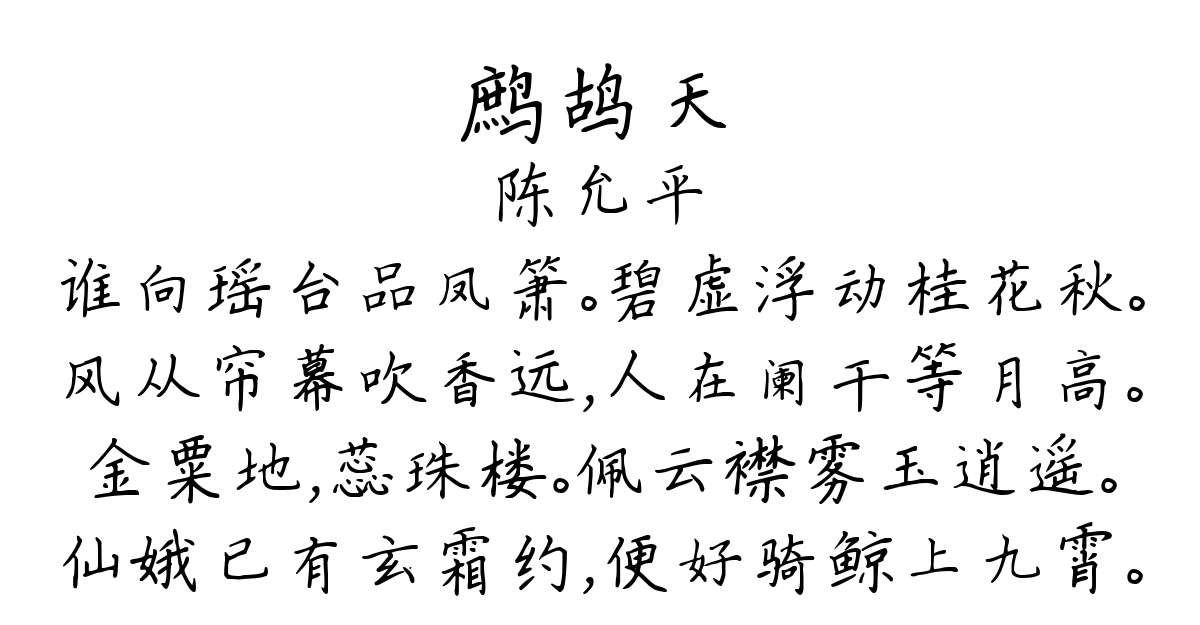 鹧鸪天
陈允平
谁向瑶台品凤箫。碧虚浮动桂花秋。
风从帘幕吹香远,人在阑干等月高。
金粟地,蕊珠楼。佩云襟雾玉逍遥。
仙娥已有玄霜约,便好骑鲸上九霄。